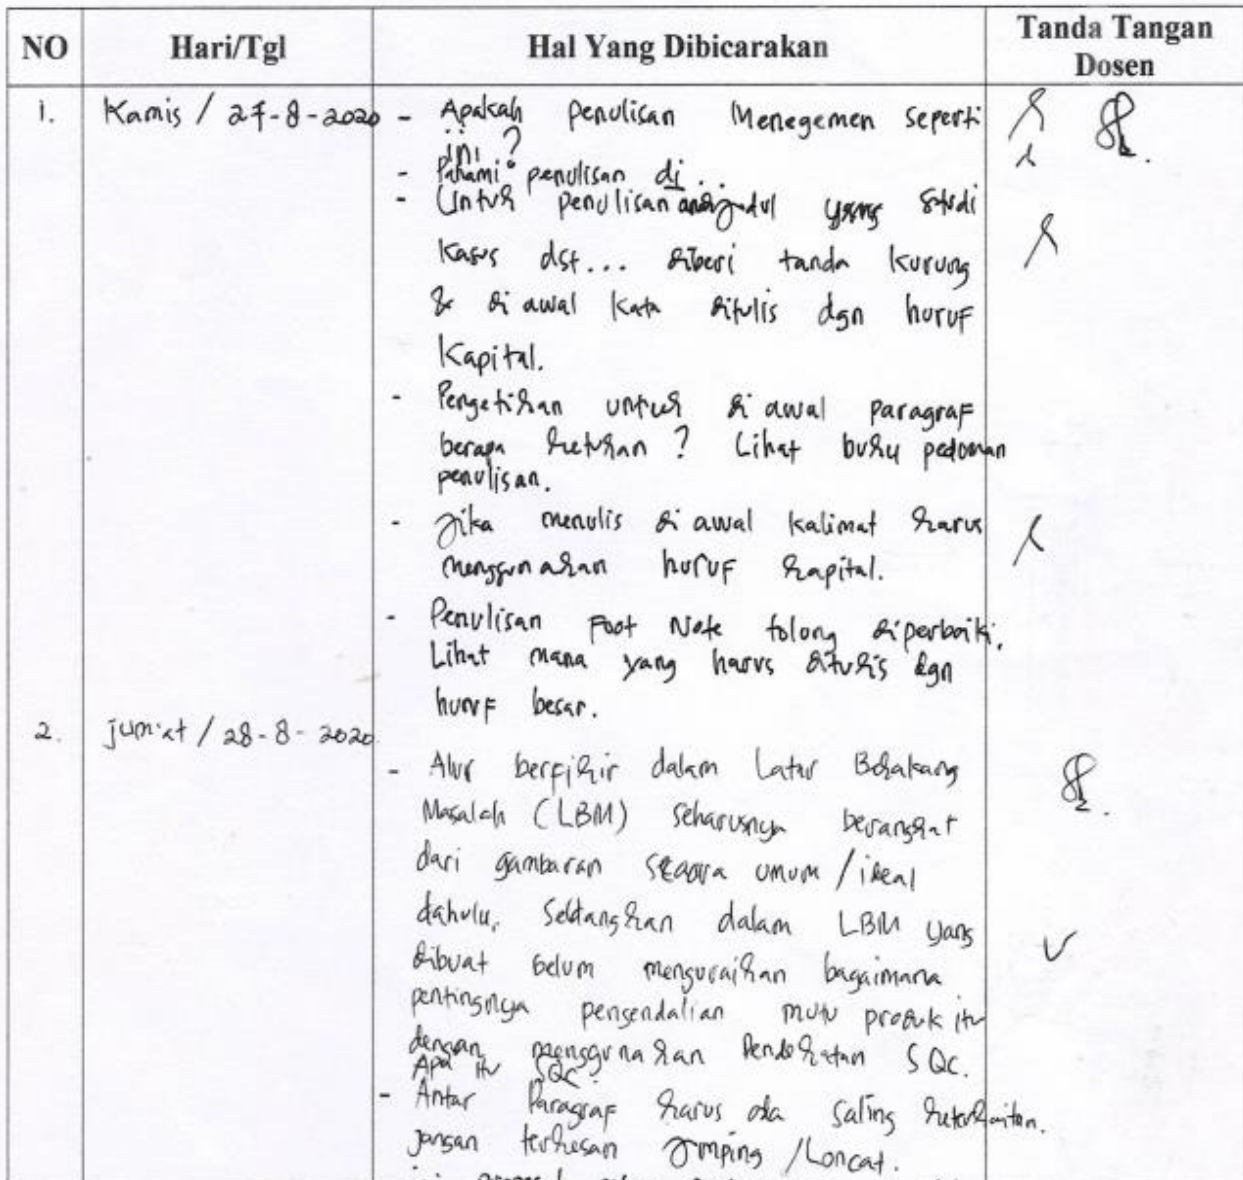 NO Hari/Tgl Hal Yang Dibicarakan Tanda Tangan
Dosen
1. Kamis / 27-8-2020 - Apakah penulisan Menegemen seperti
ini ?
- Pahami penulisan di...
- Untuk penulisan judul yang studi
Kasus dst... diberi tanda kurung
& di awal kata ditulis dgn huruf
Kapital.
- Pengetikan untuk di awal paragraf
berapa ketukan ? Lihat buku pedoman
penulisan.
- Jika menulis di awal kalimat harus
menggunakan huruf kapital.
- Penulisan Foot Note tolong diperbaiki.
Lihat mana yang harus ditulis dgn
huruf besar.
2. jum'at / 28-8-2020
- Alur berfikir dalam Latar Belakang
Masalah (LBM) seharusnya berangkat
dari gambaran secara umum / ideal
dahulu. Sedangkan dalam LBM yang
dibuat belum menguraikan bagaimana
pentingnya pengendalian mutu produk itu
dengan menggunakan Pendekatan SQC.
Apa itu SQC.
- Antar Paragraf harus ada saling keterkaitan.
jangan terkesan Jmping / Loncat.